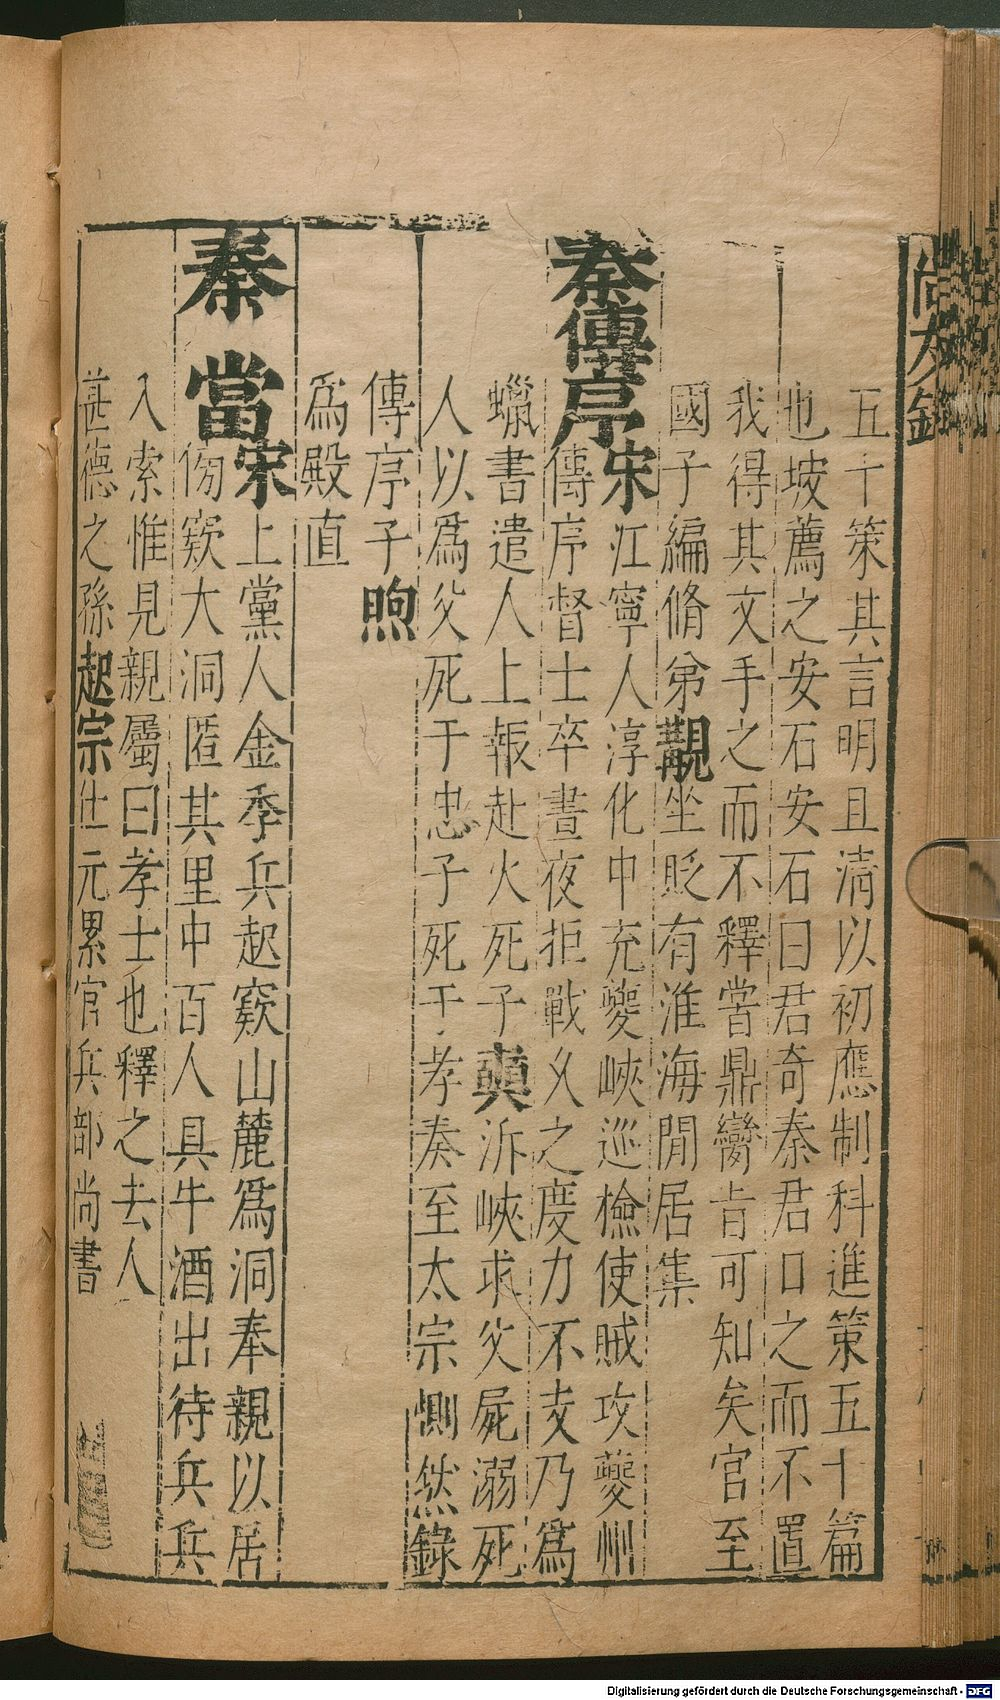 五十策其言明且清以初應制科進策五十篇
也坡薦之安石安石曰君奇秦君口之而不置
我得其文手之而不釋嘗鼎臠㫖可知矣官至
國子編脩弟覯坐貶有淮海閒居集
秦傳序宋江寧人淳化中充夔峽巡檢使賊攻夔州
傳序督士卒晝夜拒戰乆之度力不支乃爲
蠟書遣人上報赴火死子奭泝峽求父屍溺死
人以爲父死于忠子死于孝奏至太宗惻然錄
傳序子煦
爲殿直
秦當宋上黨人金季兵起窾山麓爲洞奉親以居
傍窾大洞匿其里中百人具牛酒出待兵兵
入索惟見親屬曰孝士也釋之去人
甚德之孫起宗仕元累官兵部尚書
Digitalisierung gefördert durch die Deutsche Forschungsgemeinschaft - DFG